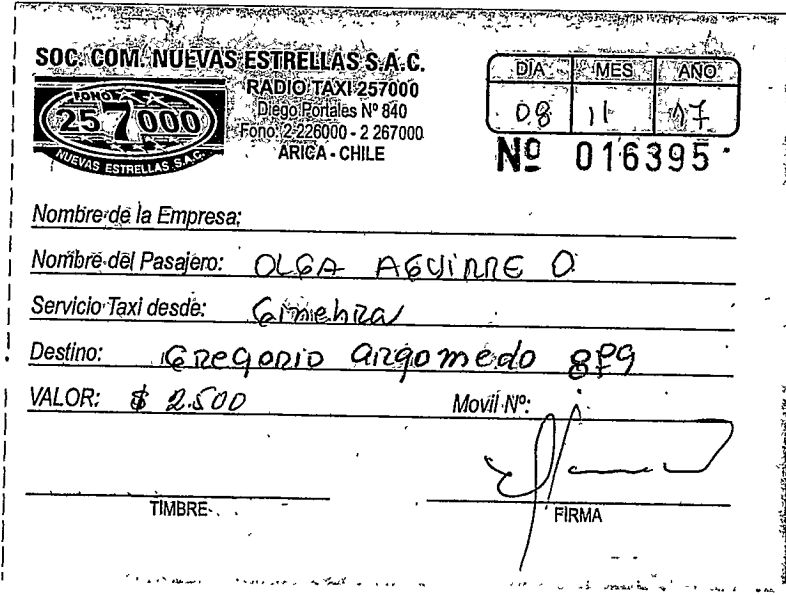 SOC. COM. NUEVAS ESTRELLAS S.A.C.
FONO
257000
NUEVAS ESTRELLAS S.A.C.
RADIO TAXI 257000
Diego Portales Nº 840
Fono: 2-226000 - 2 267000
ARICA - CHILE
DIA MES AÑO
08 11 17
Nº 016395
Nombre de la Empresa:
Nombre del Pasajero: OLGA AGUIRRE O.
Servicio Taxi desde:
Destino: Gregorio argomedo
VALOR: $ 2.500 Movil Nº:
TIMBRE
FIRMA